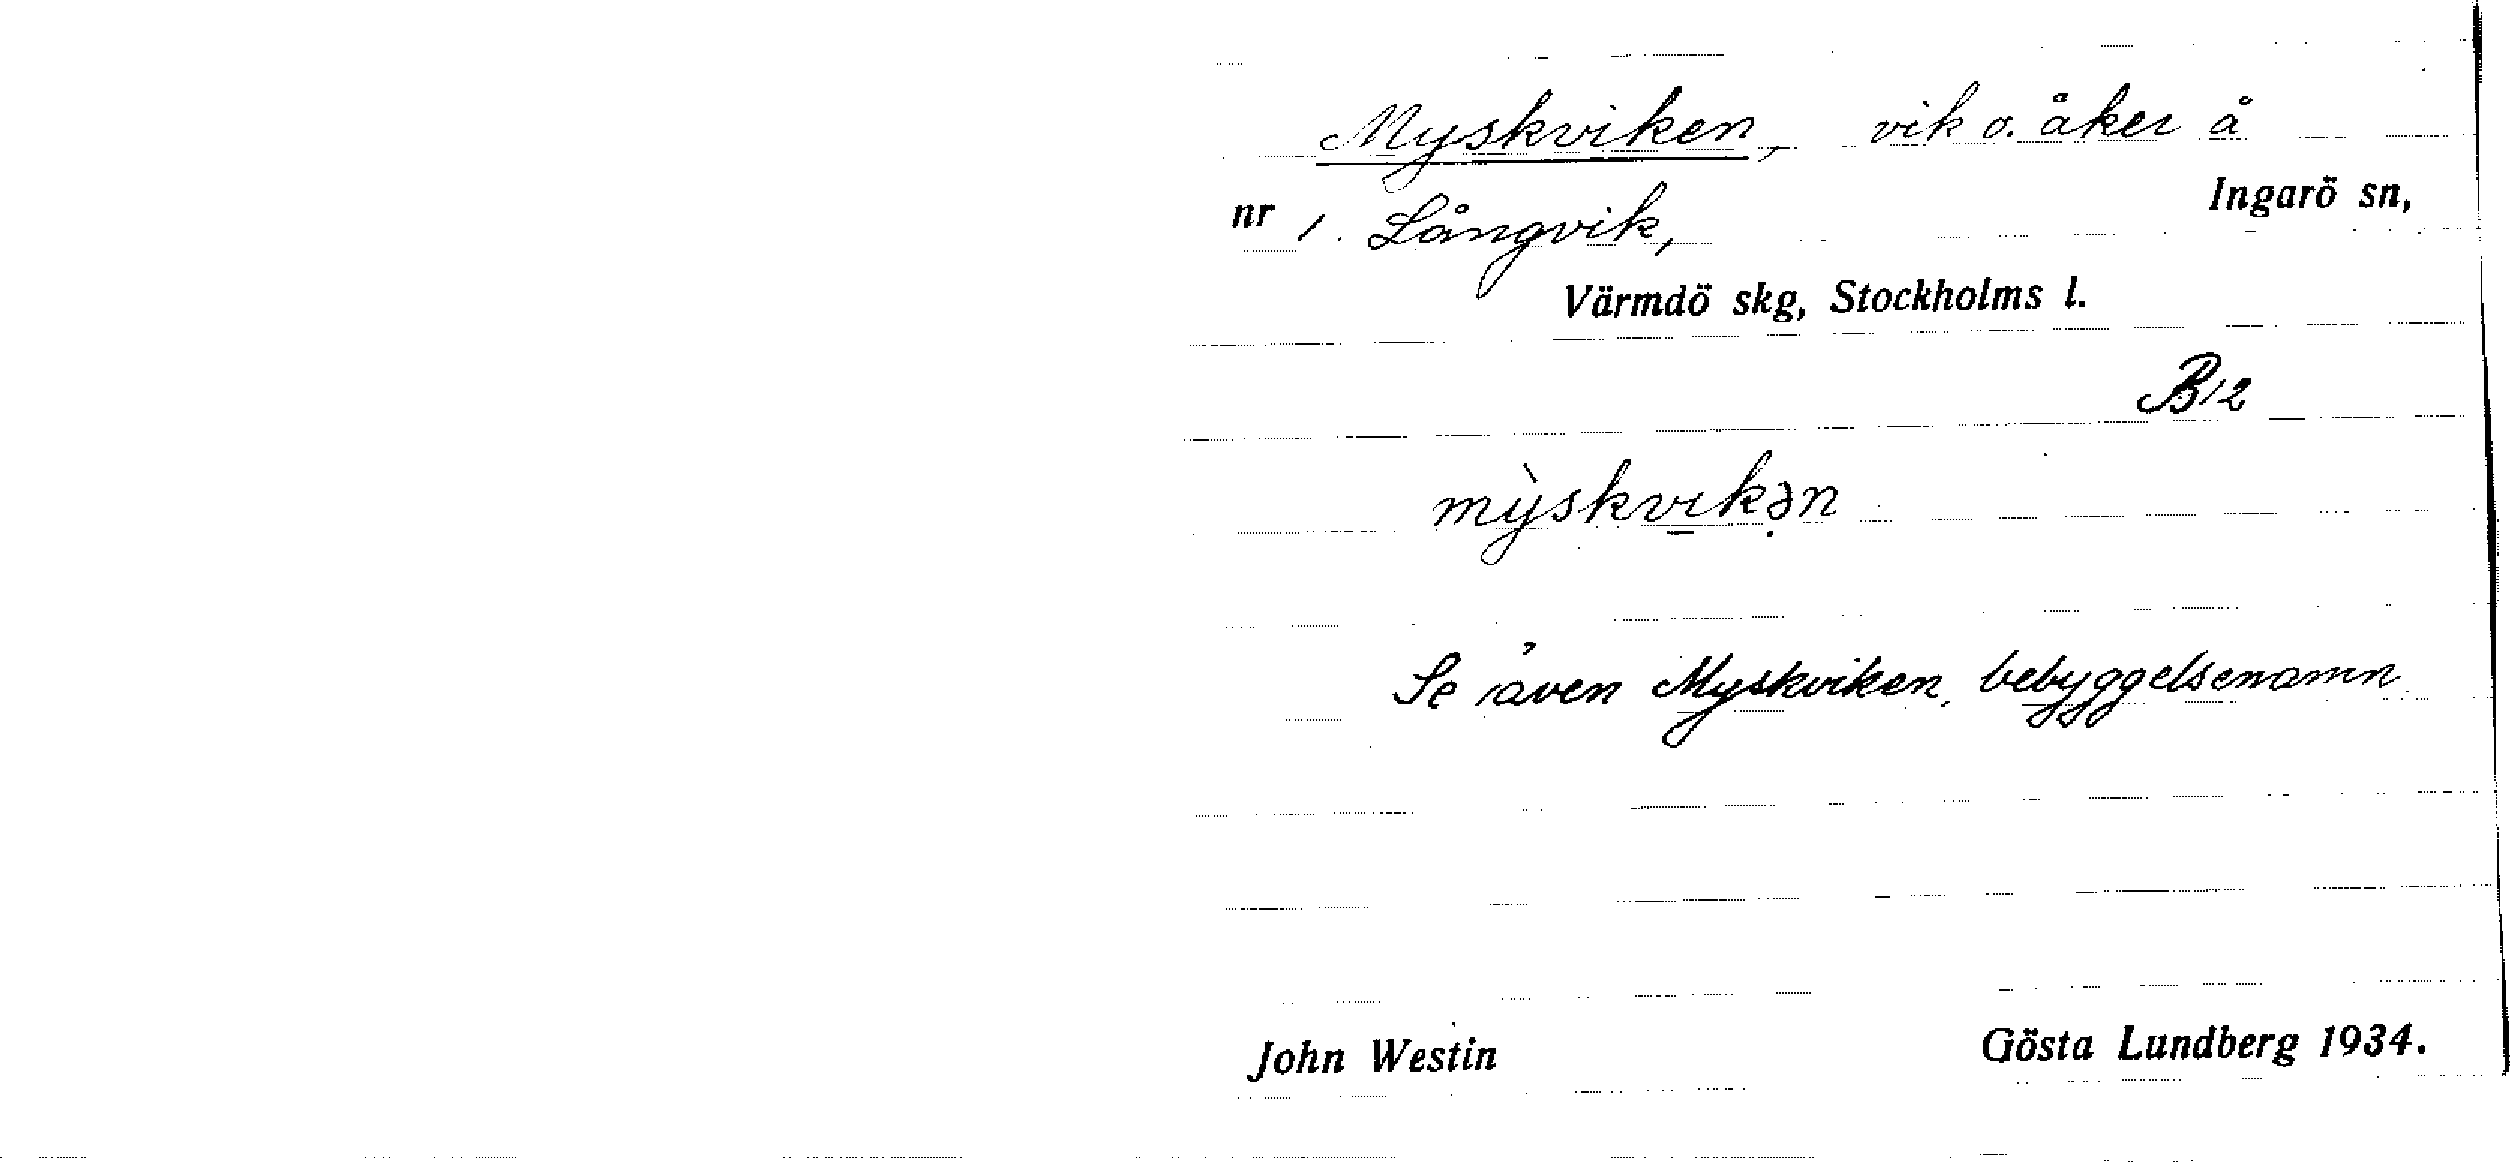 Myskviken, vik o. åker å
Ingarö sn,
nr 1. Långvik,
Värmdö skg, Stockholms l.
B12
mỳskvıkən
Se även Myskviken, bebyggelsenamn
John Westin Gösta Lundberg 1934.